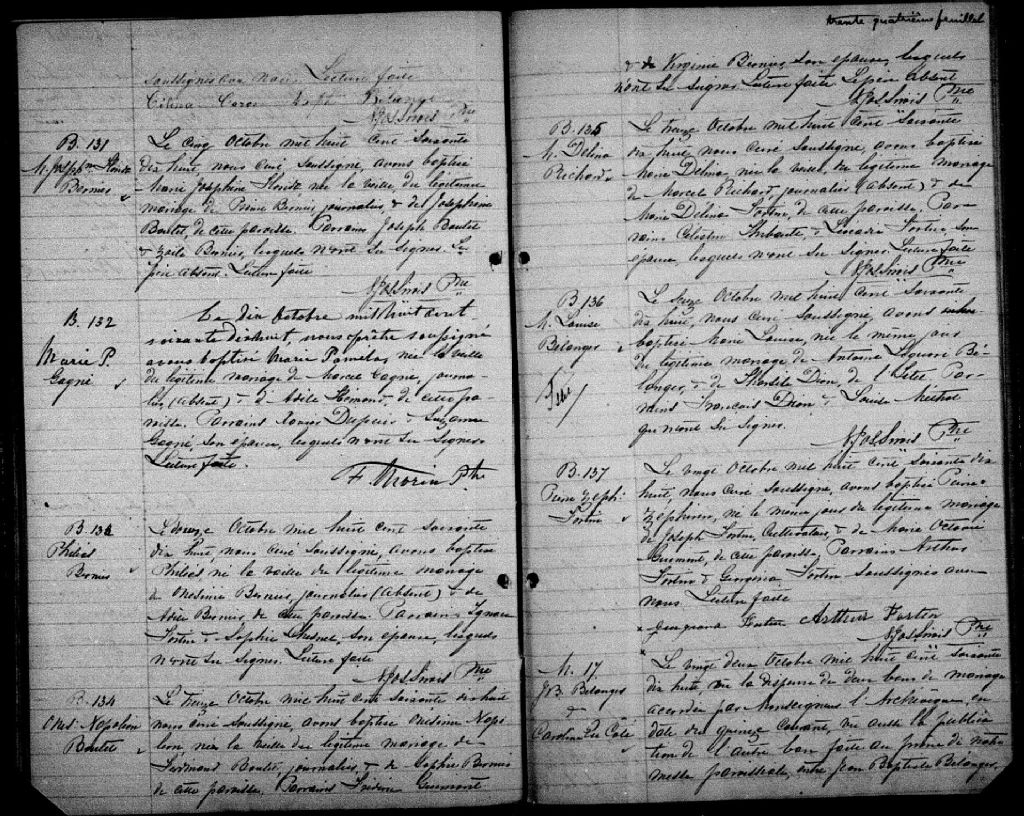 soussignés avec nous. Lecture faite
B. 131
M. Josephine
Bernier
Le cinq Octobre mil huit cent soixante
dix huit, nous curé soussigné, avons baptisé
Marie Josephine née la veille du légitime
mariage de Bernier, journalier, & de Josephine
Boutet de cette paroisse. Parrains Joseph Boutet
& Zoïle Bernier, lesquels n'ont su signer. Le
père absent. Lecture faite
Ptre
B. 132
Marie P.
Gagné
Le dix Octobre mil huit cent
soixante dix huit, nous prêtre soussigné
avons baptisé Marie Pamela, née la veille
du légitime mariage de Marcel Gagné, journa-
lier, (absent) & d'Adèle Hemond, de cette pa-
roisse. Parrains Louis Dupuis & Suzanne
Gagné, son épouse, lesquels n'ont su signer.
Lecture faite.
F. Morin Ptr
B. 133
Philéas
Bernier
Le douze Octobre mil huit cent soixante
dix huit, nous curé soussigné, avons baptisé
Philéas né la veille du légitime mariage
de Onésime Bernier, journalier (absent) & de
Adèle Bernier, de cette paroisse. Parrains Ignace
Fortin & Sophie son épouse, lesquels
n'ont su signer. Lecture faite
Ptre
B. 134
Ones. Napoléon
Boutet
Le treize Octobre mil huit cent soixante dix huit
nous curé soussigné, avons baptisé Onésime Napo
léon né la veille du légitime mariage de
Ferdinand Boutet, journalier, & de Sophie Bernier
de cette paroisse. Parrains Frédéric Guimont
trente quatrième feuillet
& Virginie Bernier, son épouse, lesquels
n'ont su signer. Lecture faite. Le père absent
Ptre
B. 135
M. Délina
Richard
Le treize Octobre mil huit cent soixante
dix huit, nous curé soussigné, avons baptisé
Marie Délina, née la veille, du légitime mariage
de Marcel Richard journalier (absent) & de
Marie Délina Fortin, de cette paroisse. Par-
rains Célestin Thibault, & Fortin, son
épouse lesquels n'ont su signer. Lecture faite
Ptre
B. 136
M. Louise
Belanger
Le seize Octobre mil huit cent soixante
dix huit, nous curé soussigné, avons
baptisé Marie Louise, née le même jour
du légitime mariage de Antoine Bé-
langer, & de Dion, de l'Islet. Par-
rains François Dion & Louise
qui n'ont su signer.
Ptre
B. 137
Pierre Zéphi.
Fortin
Le vingt Octobre mil huit cent soixante dix
huit, nous curé soussigné, avons baptisé Pierre
Zéphirin, né le même jour du légitime mariage
de Joseph Fortin, Cultivateur, & de Marie Octavie
Guimont, de cette paroisse. Parrains Arthur
Fortin & Georgiana Fortin soussignés avec
nous. Lecture faite
Fortin Arthur Fortin
Ptre
M. 17
J.B. Belanger
&
Caroline Côté
Le vingt deux Octobre mil huit cent soixante
dix huit, vu la dispense de deux bans de mariage
accordée par Monseigneur l'Archevêque, en
date du quinze courant, vu aussi la publica
tion de l'autre ban faite au prône de notre
messe paroissiale, entre Jean Baptiste Belanger,